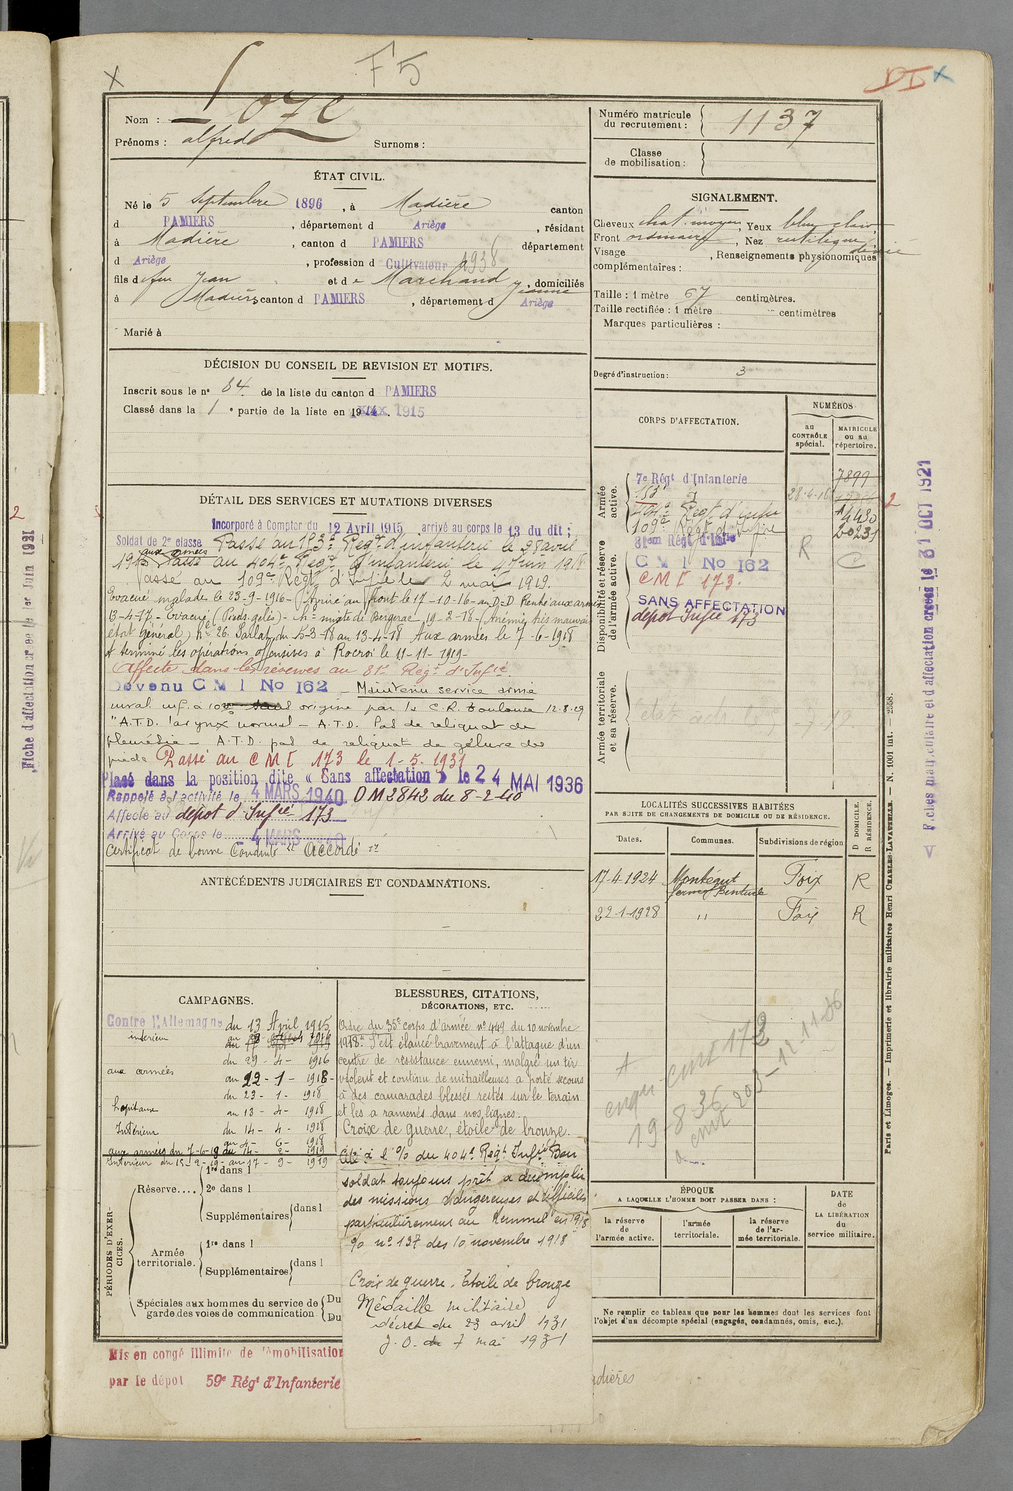 F5
DI x
Nom : Loze
Prénoms : alfred Surnoms :
Numéro matricule du recrutement : 1137
Classe de mobilisation :
ÉTAT CIVIL.
Né le 5 Septembre 1896, à Madière canton
d PAMIERS, département d Ariège, résidant
à Madière, canton d PAMIERS département
d Ariège, profession d Cultivateur
fils d feu Jean et de Marchand Jeanne, domiciliés
à Madière canton d PAMIERS, département d Ariège
Marié à
SIGNALEMENT.
Cheveux chat. moyen, Yeux bleu clair
Front ordinaire, Nez rectiligne
Visage , Renseignements physionomiques
complémentaires :
Taille : 1 mètre 67 centimètres.
Taille rectifiée : 1 mètre centimètres
Marques particulières :
Degré d'instruction : 3
DÉCISION DU CONSEIL DE REVISION ET MOTIFS.
Inscrit sous le n° 84 de la liste du canton d PAMIERS
Classé dans la 1e partie de la liste en 1915
DÉTAIL DES SERVICES ET MUTATIONS DIVERSES
Incorporé à Compter du 12 Avril 1915 arrivé au corps le 13 du dit ;
Soldat de 2e classe Passé au 153e Regt d'infanterie le 28 avril
1916 aux armées Passé au 404e Regt d'infanterie le 4 Juin 1918
Passé au 109e Regt d'Infie le 2 mai 1919.
Evacué malade le 23-9-1916 - Arrivé au front le 17-10-16 au D.D Rentré aux armées
13-4-17 - Evacué (Pieds gelés) - hal mixte de Bergerac 19-2-18 - Anémie très mauvais
état général, hal 26 Sarlat, du 5-3-18 au 13-4-18 Aux armées le 7-6-1918
A terminé les opérations offensives à Rocroi le 11-11-1919-
Affecté dans les réserves au 81e Regt d'Infie
Devenu C M I No 162 - Maintenu service armé
inval. inf. à 10% origine par la C.R. Toulouse 12-8-29
"A.T.D. larynx normal - A.T.D. Pas de reliquat de
pleurésie - A.T.D. pas de reliquat de gelure des
pieds Passé au CMI 173 le 1-5-1931
Placé dans la position dite « Sans affectation » le 24 MAI 1936
Rappelé à l'activité le 4 MARS 1940 DM 2842 du 8-2-40
Affecté au dépôt d'Infie 173
Arrivé au Corps le 4 MARS 1940
Certificat de bonne Conduite "Accordé"
CORPS D'AFFECTATION.
NUMÉROS
au CONTRÔLE spécial.
MATRICULE ou au répertoire.
Armée active.
7e Régt d'Infanterie 7899
153e 28-4-16
404e Regt d'infie
109e Regt d'Infie 20231
Disponibilité et réserve de l'armée active.
81eme Régt d'Infie
C M I No 162 R C
CMI 173.
SANS AFFECTATION
dépôt Infie 173
Armée territoriale et sa réserve.
LOCALITÉS SUCCESSIVES HABITÉES
PAR SUITE DE CHANGEMENTS DE DOMICILE OU DE RÉSIDENCE.
Dates. Communes. Subdivisions de région D DOMICILE. R RÉSIDENCE.
17-4-1924 Montegut Foix R
22-1-1928 " Foix R
ANTÉCÉDENTS JUDICIAIRES ET CONDAMNATIONS.
CAMPAGNES.
Contre l'Allemagne du 13 April 1915
intérieur
du 29 - 4 - 1916
aux armées au 22 - 1 - 1918 -
du 23 - 1 - 1918
hopitaux au 13 - 4 - 1918
Intérieur du 14 - 4 - 1918
au 6 - 6 - 1918
aux armées du 7-6-18 au 14 - 2 - 1919
Intérieur du 15-2-19 au 17 - 9 - 1919
PÉRIODES D'EXERCICES.
Réserve.... 1re dans l
2e dans l
Supplémentaires dans l
Armée territoriale. 1re dans l
Supplémentaires dans l
Spéciales aux hommes du service de garde des voies de communication Du Du
BLESSURES, CITATIONS,
DÉCORATIONS, ETC.
Ordre du 35e corps d'armée n° 449 du 10 novembre
1918. S'est élancé bravement à l'attaque d'un
centre de résistance ennemi, malgré un tir
violent et continu de mitrailleuses a porté secours
à des camarades blessés restés sur le terrain
et les a ramenés dans nos lignes.
Croix de guerre, étoile de bronze.
Cité à l'o/ du 404e Regt Infie Bon
soldat toujours prêt a accomplir
des missions dangereuses et difficiles
particulièrement au Kemmel en 1918
o/ n° 137 des 10 novembre 1918
Croix de guerre. Etoile de bronze
Médaille militaire
décret du 23 avril 1931
J.O. du 7 mai 1931
cmt 173
19-8-36
ÉPOQUE
A LAQUELLE L'HOMME DOIT PASSER DANS :
la réserve de l'armée active.
l'armée territoriale.
la réserve de l'armée territoriale.
DATE DE LA LIBÉRATION du service militaire.
Ne remplir ce tableau que pour les hommes dont les services font
l'objet d'un décompte spécial (engagés, condamnés, omis, etc.).
Mis en congé illimité de démobilisation
par le dépôt 59e Régt d'Infanterie
Paris et Limoges. — Imprimerie et librairie militaires Henri CHARLES-LAVAUZELLE. — N. 1001 int. — 2558.
Fiches matriculaire et d'affectation créées le 31 OCT 1921
Fiche d'affectation créée le 1er Juin 1921